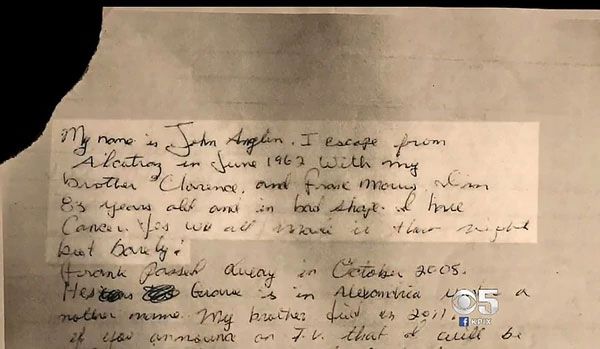 My name is John Anglin. I escape from
Alcatraz in June 1962 With my
brother Clarence, and Frank Morris. I'm
83 years old and in bad shape. I have
Cancer. Yes we all Made it that night
but barely!
Frank passed away in October 2008.
Hes Grave is in Alexandria under a
nother name. My brother died in 2011.
if you announce on T.V. that I will be
5
KPIX